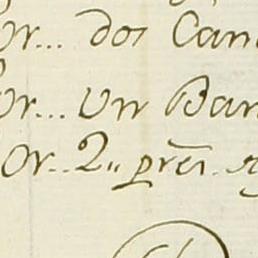 or... dos Can
or... Un Ban
or... 2,, pres.